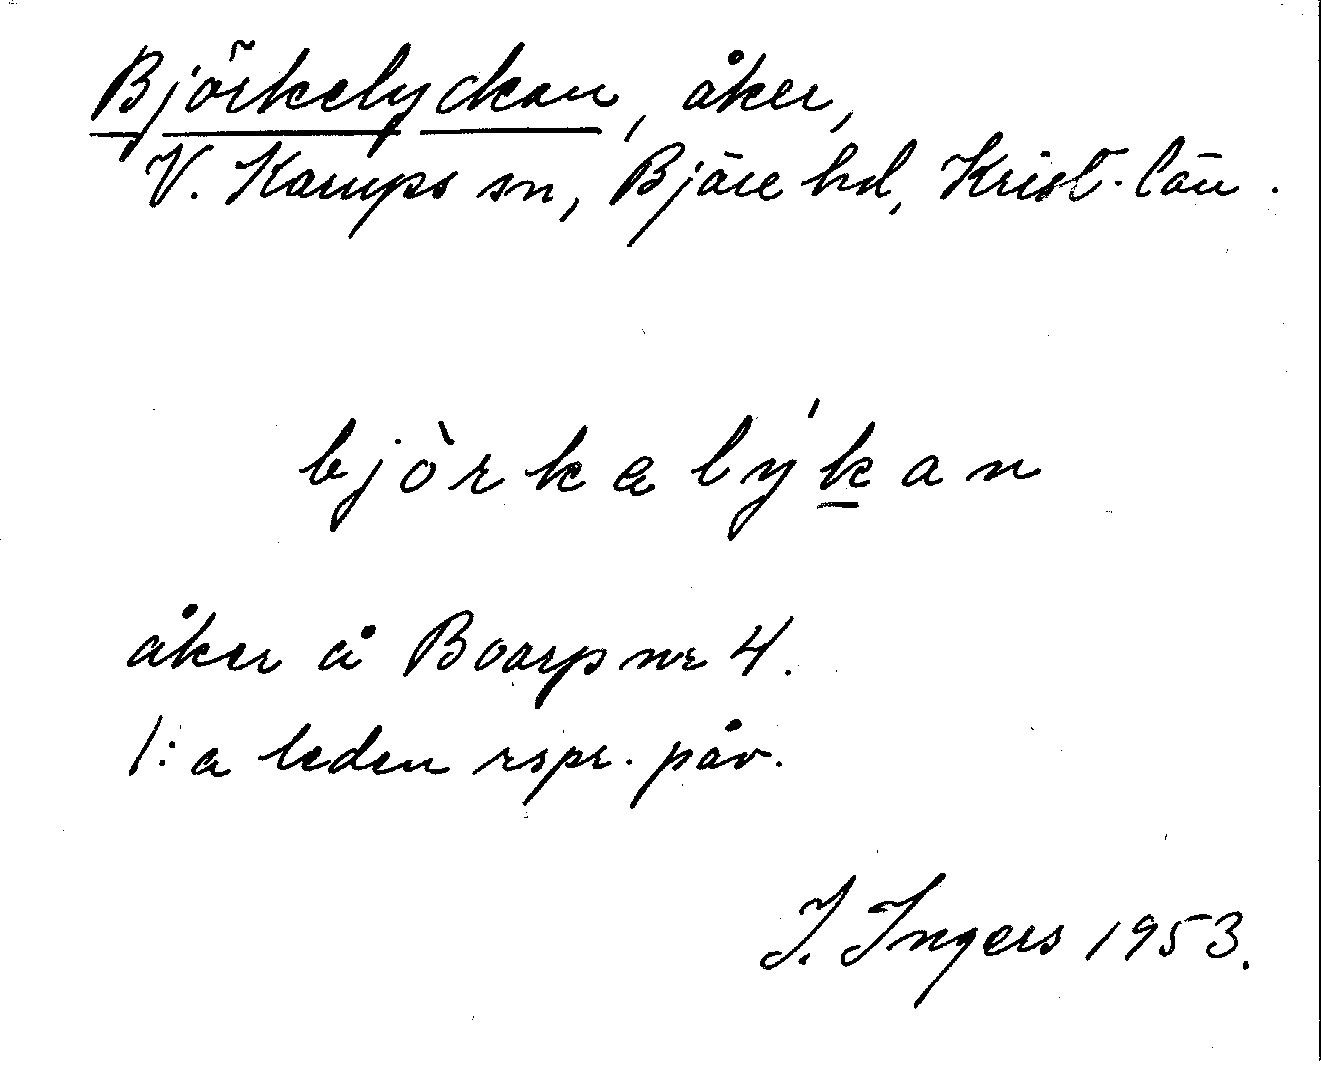 Björkelyckan, åker,
V. Karups sn, Bjäre hd, Krist. län.
bjòrkalýkan
åker å Boarp nr 4.
1:a leden rspr. påv.
I. Ingers 1953.